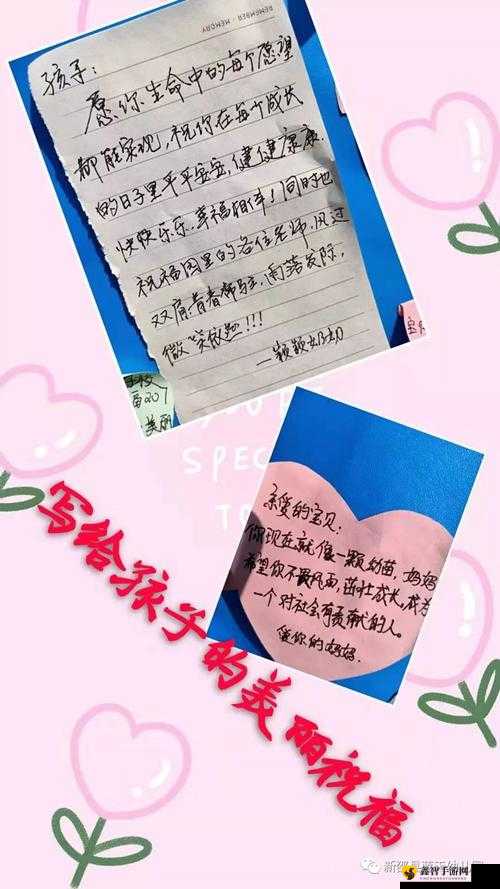 REMEMBER · MEMORY
孩子：
愿你生命中的每个愿望
都能实现，祝你在每个成长
的日子里平平安安，健健康康
快快乐乐，幸福相伴！同时也
祝福园里的各位老师，风过
双肩，青春常驻，雨落发际，
微笑
一颖颖奶奶
美丽
SPEC
亲爱的宝贝：
你现在就像一颗幼苗，妈妈
希望你不畏风雨，茁壮成长，成为
一个对社会有贡献的人。
爱你的妈妈.
写给孩子的美丽祝福
鑫智手游网